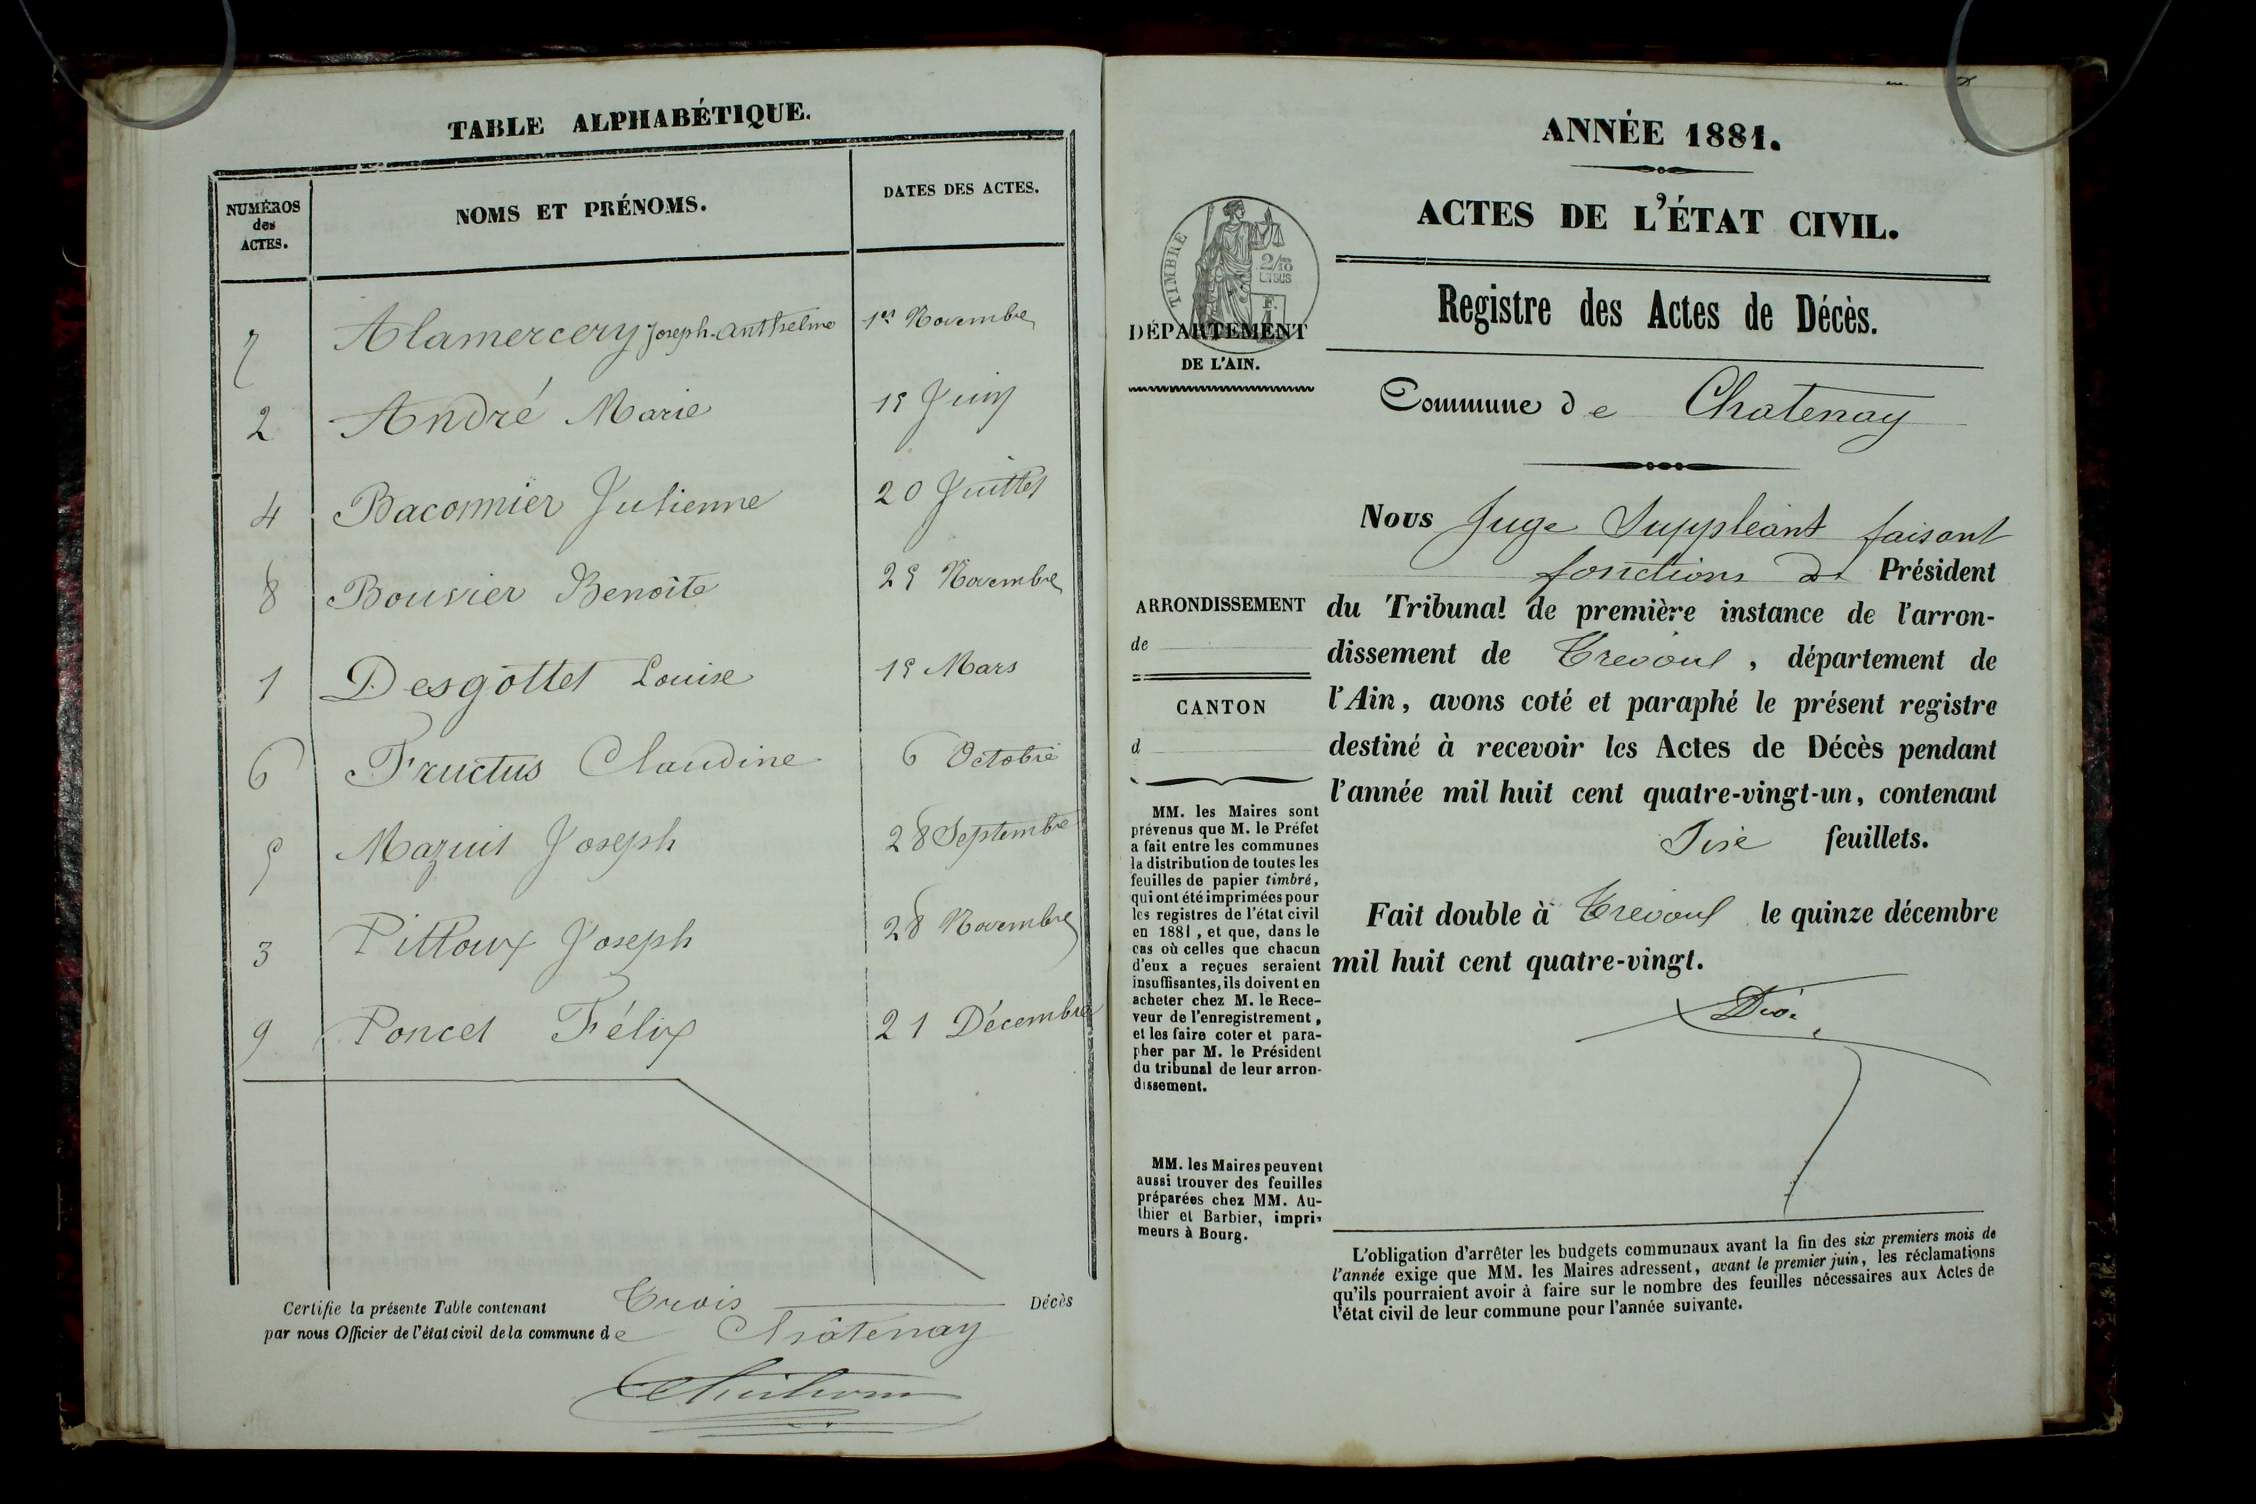 TABLE ALPHABÉTIQUE.
NUMÉROS
des
ACTES.
NOMS ET PRÉNOMS.
DATES DES ACTES.
7 Alamercery Joseph-Anthelme 1er Novembre
2 André Marie 15 Juin
4 Baconnier Julienne 20 Juillet
8 Bouvier Benoîte 25 Novembre
1 Desgottet Louise 15 Mars
6 Fructus Claudine 6 Octobre
5 Mazuit Joseph 28 Septembre
3 Pittoux Joseph 28 Novembre
9 Poncet Félix 21 Décembre
Certifie la présente Table contenant Trois Décès
par nous Officier de l'état civil de la commune de Châtenay
ANNÉE 1881.
ACTES DE L'ÉTAT CIVIL.
TIMBRE
2/10
EN SUS
DÉPARTEMENT
DE L'AIN.
Registre des Actes de Décès.
Commune de Chatenay
Nous Juge Suppléant faisant
fonctions de Président
du Tribunal de première instance de l'arron-
dissement de Trevoux, département de
l'Ain, avons coté et paraphé le présent registre
destiné à recevoir les Actes de Décès pendant
l'année mil huit cent quatre-vingt-un, contenant
feuillets.
Fait double à Trevoux le quinze décembre
mil huit cent quatre-vingt.
ARRONDISSEMENT
de
CANTON
d
MM. les Maires sont
prévenus que M. le Préfet
a fait entre les communes
la distribution de toutes les
feuilles de papier timbré,
qui ont été imprimées pour
les registres de l'état civil
en 1881, et que, dans le
cas où celles que chacun
d'eux a reçues seraient
insuffisantes, ils doivent en
acheter chez M. le Rece-
veur de l'enregistrement,
et les faire coter et para-
pher par M. le Président
du tribunal de leur arron-
dissement.
MM. les Maires peuvent
aussi trouver des feuilles
préparées chez MM. Au-
thier et Barbier, impri-
meurs à Bourg.
L'obligation d'arrêter les budgets communaux avant la fin des six premiers mois de
l'année exige que MM. les Maires adressent, avant le premier juin, les réclamations
qu'ils pourraient avoir à faire sur le nombre des feuilles nécessaires aux Actes de
l'état civil de leur commune pour l'année suivante.